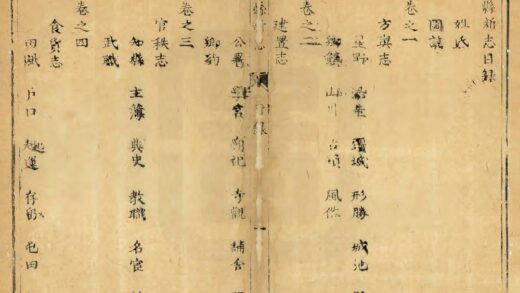 縣新志目録
姓氏
圖誌
卷之一
方輿志
星野 沿革 疆域 形勝 城池
鄉鎮 山川 風俗
卷之二
建置志
縣 志 目録 一
公署 學宮 廟祀 寺觀 舖舍
鄉約
卷之三
官秩志
知縣 主簿 典史 教職 名宦
武職
卷之四
食貨志
田賦 戶口 起運 存留 屯田